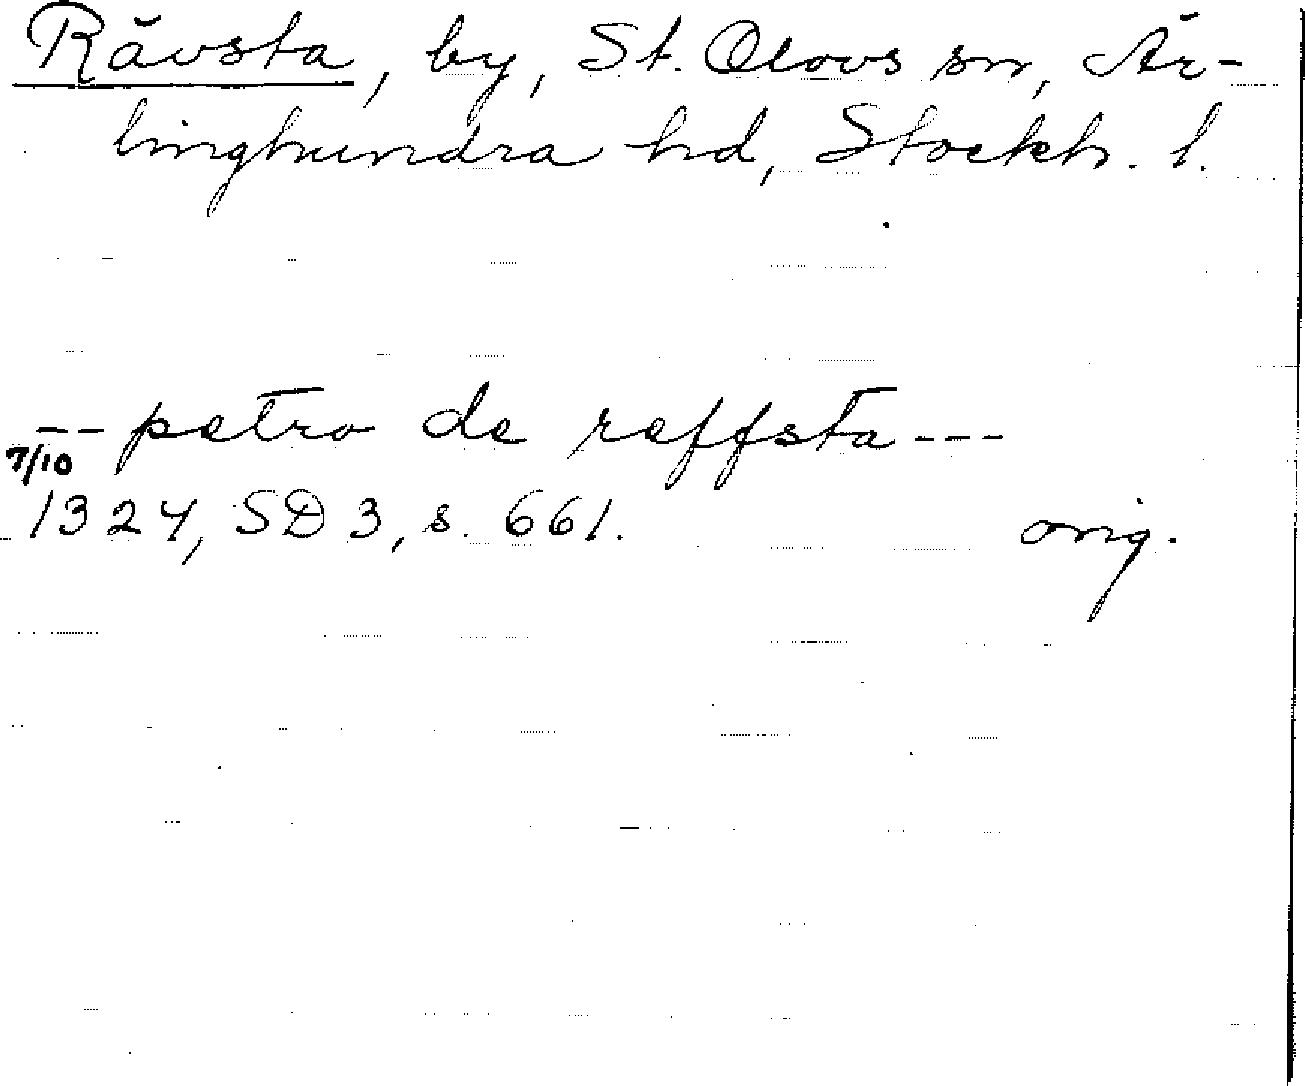 Rävsta, by, St. Olovs sn, Är-
linghundra hd, Stockh. l.
--- petro de reffsta ---
7/10
1324, SD 3, s. 661. orig.